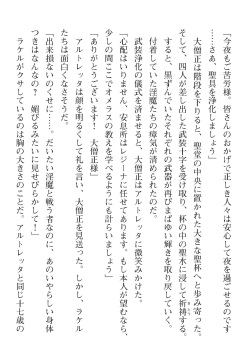 「今夜もご苦労様。皆さんのおかげで正しき人々は安心して夜を過ごせるのです
……さあ、聖具を浄化しましょう」
大僧正は階段を下りると、聖堂の中央に置かれた大きな聖杯へと歩み寄った。
そして、四人が差し出した武装十字を受け取り、杯の中の聖水に浸して祈禱する。
すると、黒ずんでいたそれぞれの武器が再びまばゆい輝きを取り戻していく。
付着していた淫魔たちの瘴気が清められたのだ。
武装浄化の儀式を済ませると、大僧正はアルトレッタに微笑みかけた。
「心配はいりません、安息所はレジーナに任せてあります。もし本人が望むなら、
少しの間ここでオメラスの教えを学べるように手配しましょう」
「ありがとうございます！　大僧正様」
アルトレッタは顔を明るくして礼を言い、大僧正を見送った。しかし、ラケル
たちは面白くなさそうだ。
「出来損ないのくせに……。だいたい淫魔と戦う者なのに、あのいやらしい身体
つきはなんなの？　媚びるみたいに見せびらかして！」
ラケルがクサしているのは胸の大きさのことだ。アルトレッタと同じ十七歳の